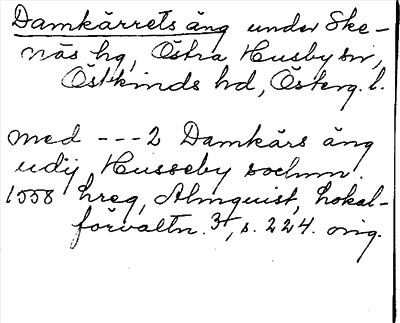 Damkärrets äng under Ske-
näs hg, Östra Husby sn,
Östkinds hd, Österg. l.
med --- 2 Damkärs äng
udij Husseby sochnn.
1558 hreg, Almquist, Lokal-
förvaltn. 3, s. 224. orig.